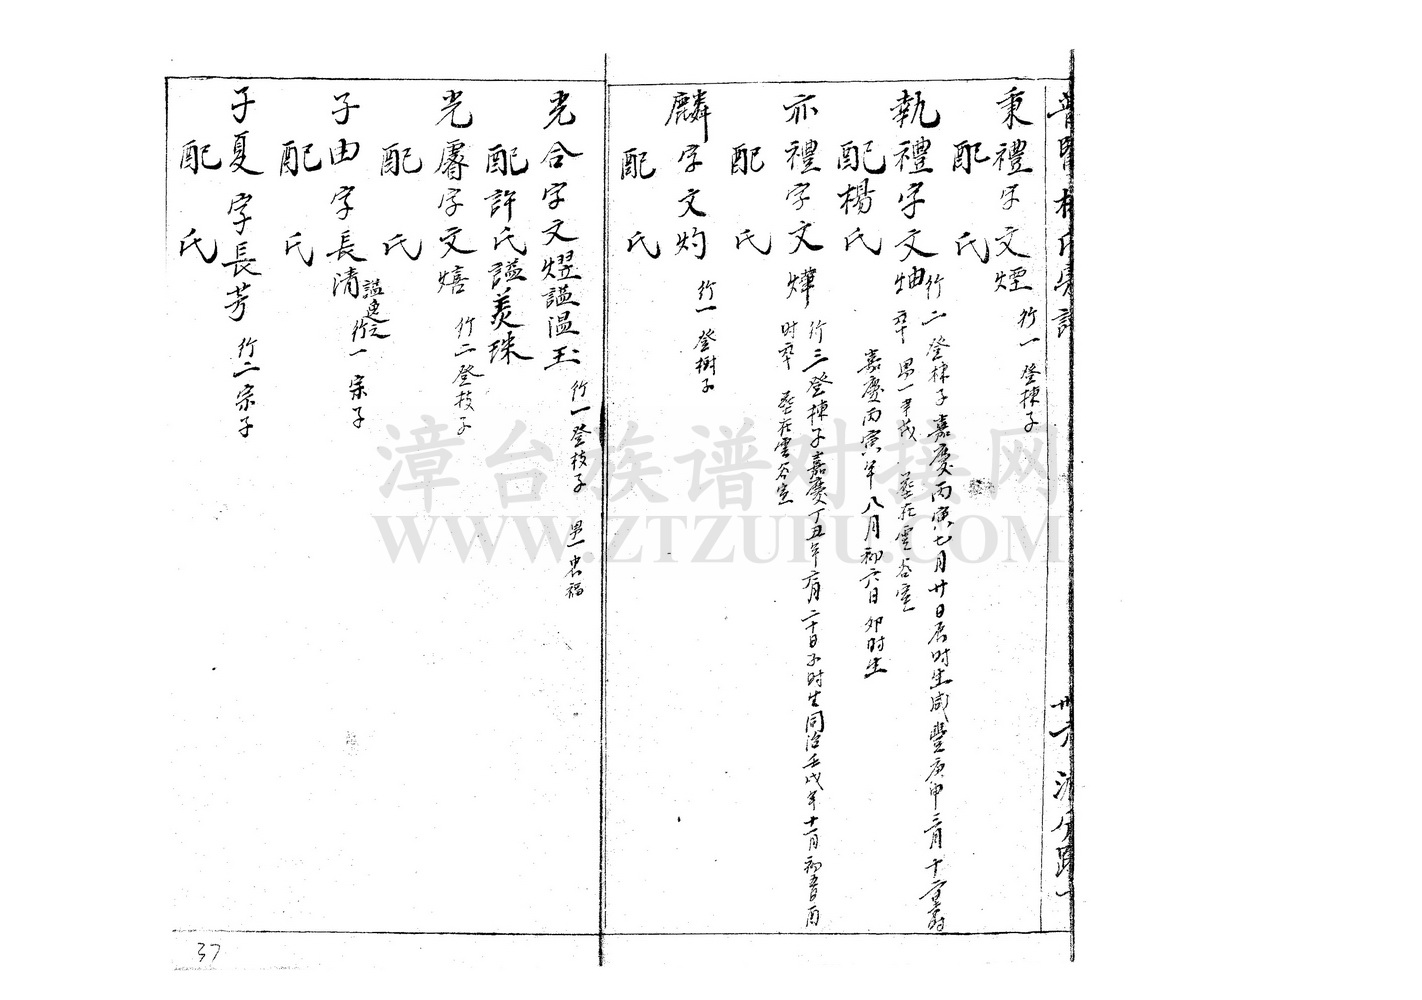 秉禮字文煙 行一登棟子
配 氏
執禮字文㶭 行二登棟子嘉慶丙寅七月廿日辰時生咸豐庚申三月十二日
卒 男一 葬在雲谷室
配楊氏 嘉慶丙寅年八月初六日卯時生
亦禮字文燁 行三登棟子嘉慶丁丑年六月二十日子時生同治壬戌年十一月初五日酉
時卒 葬在雲谷室
配 氏
麟字文灼 行一登樹子
配 氏
光合字文熠謚温玉 行一登枝子 男一忠福
配許氏謚美珠
光睿字文熺 行二登枝子
配 氏
子由字長清謚逸之 行一宗子
配 氏
子夏字長芳 行二宗子
配 氏
37
漳台族谱对接网
WWW.ZTZUPU.COM